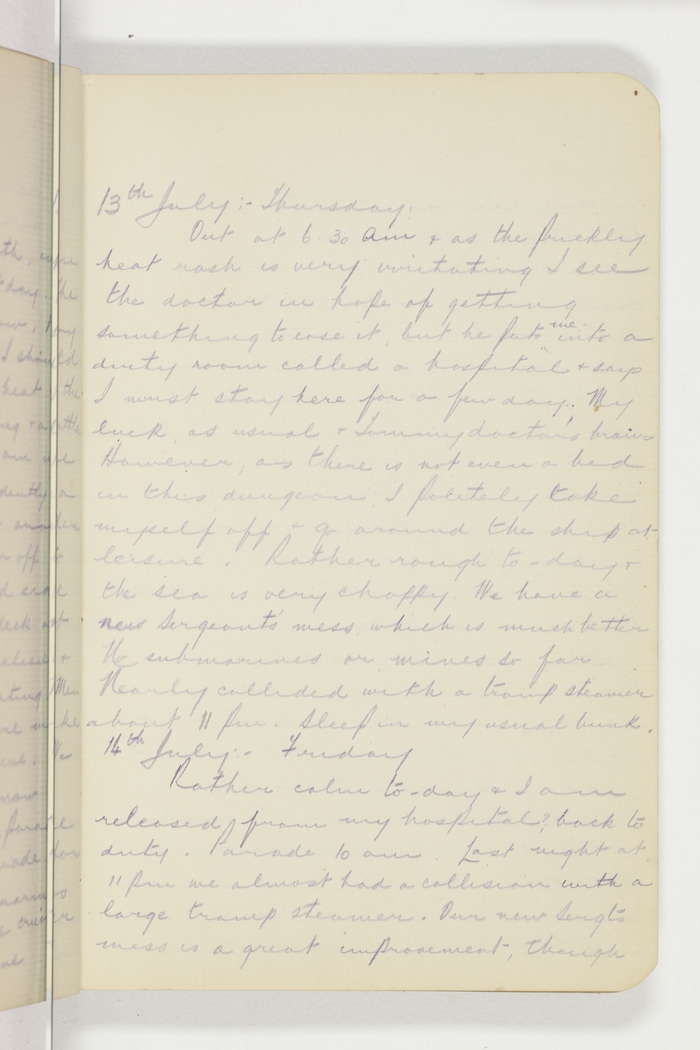 13th July :- Thursday.
Out at 6.30 am & as the prickly
heat rash is very irritating I see
the doctor in hope of getting
something to ease it, but he puts me into a
dirty room called a hospital & says
I must stay here for a few days. My
luck, as usual & Tommy doctor's brains
However, as there is not even a bed
in this dungeon I politely take
myself off & go around the ship at
leisure. Rather rough to-day &
the sea is very choppy. We have a
new Sergeants' mess, which is much better
No submarines or mines so far.
Nearly collided with a tramp steamer
about 11 pm. Sleep in my usual bunk.
14th July :- Friday
Rather calm to-day & I am
released from my hospital? back to
duty. Parade 10 am. Last night at
11 pm we almost had a collision with a
large tramp steamer. Our new Sergts
mess is a great improvement, though